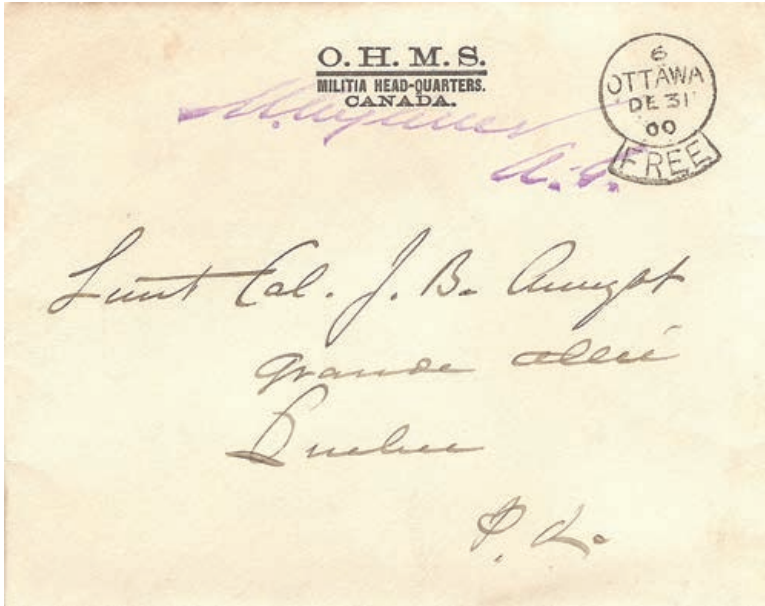 O. H. M. S.
MILITIA HEAD-QUARTERS.
CANADA.
6
OTTAWA
DE 31
00
FREE
A. G.
Lieut Col. J. B. Amyot
Grande Allée
Quebec
P. Q.